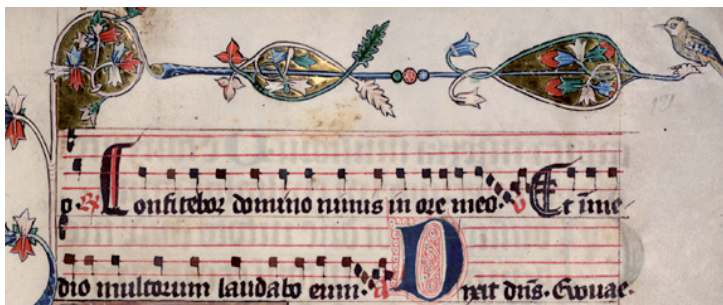 o. ℟ Confitebor domino nimis in ore meo. ℣ Et īme
dio multorum laudabo eum. a Dixit dn̄s. Euouae.